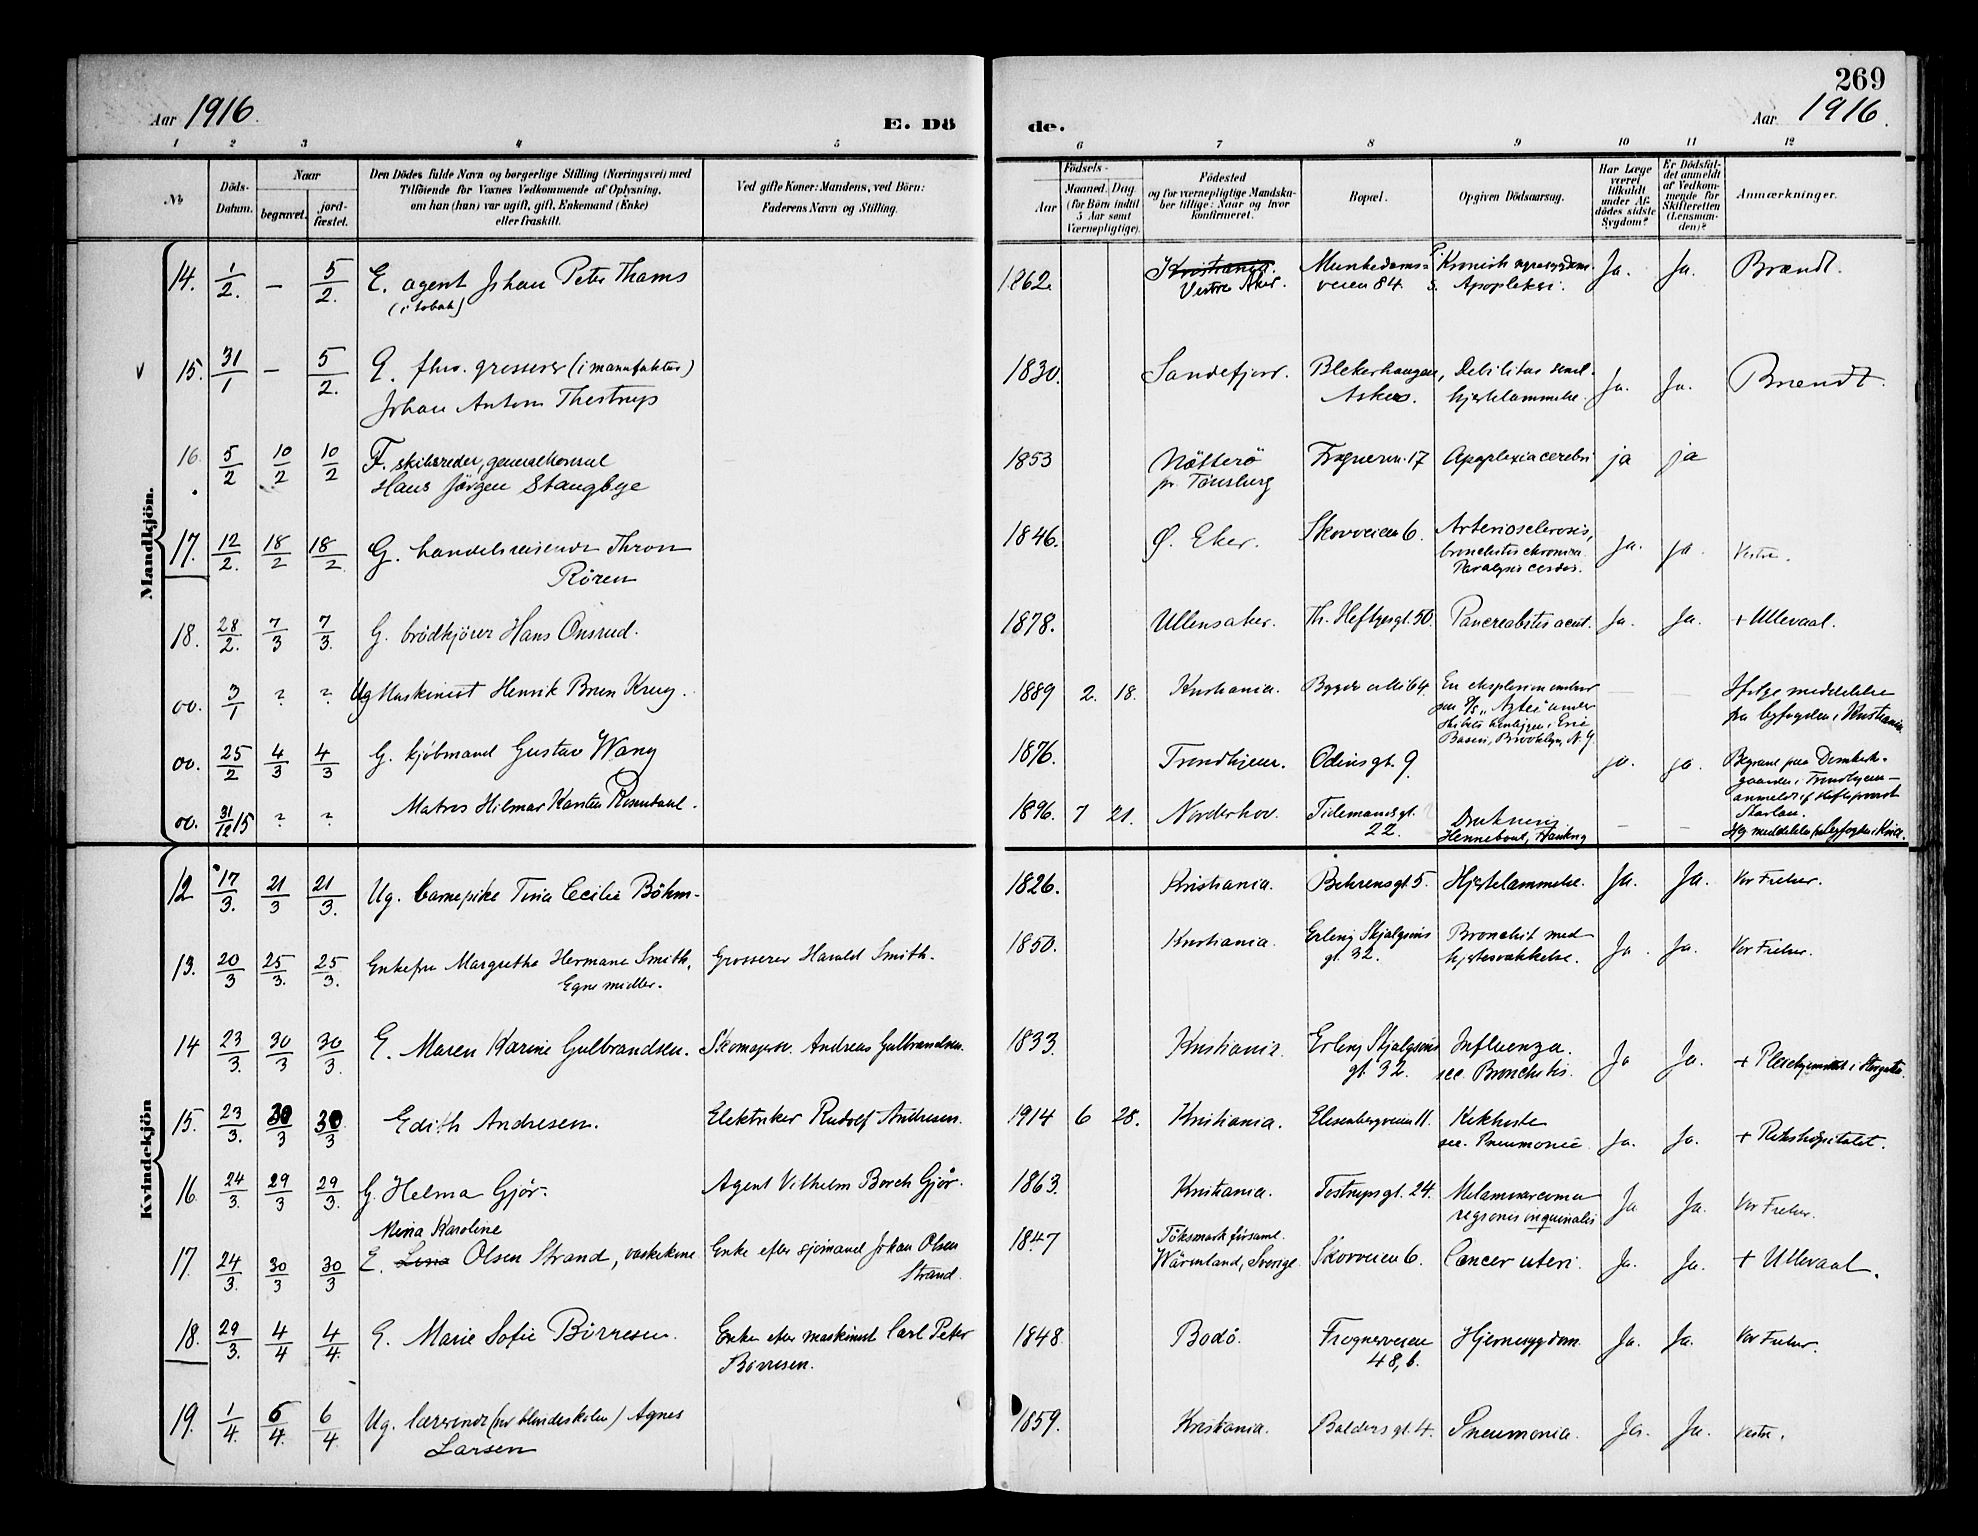 269
Aar 1916.
E. Dö
de.
Aar 1916.
1 2 3 4 5 6 7 8 9 10 11 12
№
Döds-
Datum.
Naar
begravet.
jord-
fæstet.
Den Dödes fulde Navn og borgerlige Stilling (Næringsvei) med
Tilföiende for Voxnes Vedkommende af Oplysning,
om han (hun) var ugift, gift, Enkemand (Enke)
eller fraskilt.
Ved gifte Koner: Mandens, ved Börn:
Faderens Navn og Stilling.
Födsels-
Aar
Maaned. Dag
(for Börn indtil
5 Aar samt
Værnepligtige).
Födested
og for værnepligtige Mandska-
ber tillige: Naar og hvor
Konfirmeret.
Bopæl.
Opgiven Dödsaarsag.
Har Læge
været
tilkaldt
under Af-
dödes sidste
Sygdom?
Er Dödsfal-
det anmeldt
af Vedkom-
mende for
Skifteretten
(Lensman-
den)?
Anmærkninger.
Mandkjön.
14. 1/2. — 5/2. E. agent Johan Peter Thams
(i tobak)
1862. Kristiania.
Vestre Aker. Munkedams-
veien 84. Kronisk
Apopleksi. Ja. Ja. Brændt.
15. 31/1 — 5/2. G. fhv. grosserer (i manufaktur)
Johan Anton Thestrup
1830. Sandefjord. Blekerhaugen,
Asker. Debilitas senil.
hjertelammelse. Ja. Ja. Brændt.
16. 5/2 10/2 10/2 F. skibsreder, generalkonsul
Hans Jörgen Stangbye
1853 Nötterö
pr. Tönsberg Frognerv. 17 Apoplexia cerebri ja ja
17. 12/2. 18/2 18/2 G. handelsreisende Thron
Rören
1846. Ø. Eker. Skovveien 6. Arteriosclerosis,
bronchitis chronica.
Paralysis cordis. Ja. ja. Vestre.
18. 28/2. 7/3 7/3. G. brödkjörer Hans Onsrud.
1878. Ullensaker. Th. Heftyesgt. 50. Pancreatitis acut. Ja. Ja. + Ullevaal.
oo. 3/1 ? ? Ug Maskinist Henrik Brun Krug.
1889 2. 18. Kristiania. Bygdø allé 64. En eksplosion ombord
paa S/S "Aztec" under
Erie
Basin, Brooklyn, N.Y. — — Ifølge meddelelse
fra byfogden i Kristiania.
oo. 25/2 4/3 4/3 G. kjöbmand Gustav Wang
1876. Trondhjem. Odins gt. 9. ja. ja. Begravet paa Domkirke-
gaarden i Trondhjem—
anmeldt
oo. 31/12 15 ? ? Matros Hilmar Karsten Rosendahl.
1896. 7 21. Norderhov. Tidemandsgt.
22. Drukning
Hennebont, — —
Kvindekjön
12 17/3. 21/3 21/3. Ug. barnepike Tina Cecilie Böhm.
1826. Kristiania. Behrensgt. 5. Hjertelammelse. Ja. Ja. Vor Frelser.
13. 20/3 25/3. 25/3. Enkefru Margrethe Hermane Smith,
Egne midler. Grosserer Harald Smith.
1850. Kristiania. Erling Skjalgsöns
gt. 32. Bronchit med
hjertesvækkelse. Ja. Ja. Vor Frelser.
14 23/3. 30/3. 30/3. E. Maren Karine Gulbrandsen. Skomagersv. Andreas Gulbrandsen.
1833. Kristiania. Erling Skjalgsöns
gt. 32. Influenza.
sec. Bronchitis. Ja Ja. + Pleiehjemmet i Storgaten.
15. 23/3. 30/3 30/3 Edith Andresen. Elektriker Rudolf Andresen.
1914 6 28. Kristiania. Elisenbergveien 11. Kikhoste
sec. Pneumonie Ja. Ja. + Rikshospitalet.
16 24/3. 29/3 29/3. G. Helma Gjör. Agent Vilhelm Borch Gjör.
1863. Kristiania. Tostrupsgt. 24. Melanosarcoma
regionis inguinalis Ja Ja. Vor Frelser.
Mena Karoline
17. 24/3. 30/3 30/3 E. Lena Olsen Strand, vaskekone Enke efter sjömand Johan Olsen
Strand.
1847 Töksmark församl.
Wärmland, Sverige. Skovveien 6. Cancer uteri. Ja. Ja. + Ullevaal.
18. 29/3. 4/4 4/4. E. Marie Sofie Börresen. Enke efter maskinist Carl Peter
Börresen.
1848 Bodö. Frognerveien
48, b. Hjernesygdom Ja. Ja. Vor Frelser.
19. 1/4. 6/4. 6/4 Ug. lærerinde (ved blindeskolen) Agnes
Larsen
1859. Kristiania. Balders gt. 4. Pneumonia. Ja. Ja. Vestre.